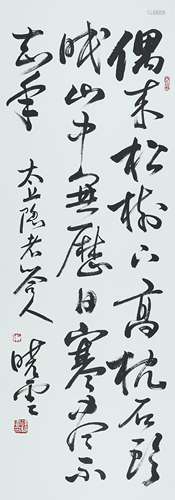 偶来松树下高枕石头
眠山中無歷日寒尽不
知年
太上隐者答人
晓云